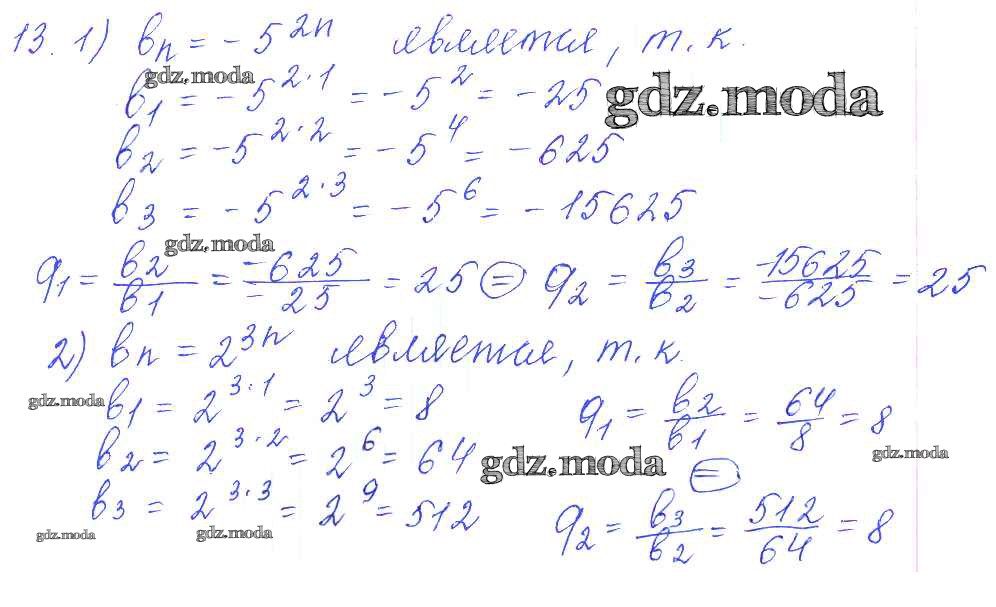 13. 1) bₙ = -5²ⁿ является, т.к.
gdz.moda
b₁ = -5²·¹ = -5² = -25
gdz.moda
b₂ = -5²·² = -5⁴ = -625
b₃ = -5²·³ = -5⁶ = -15625
gdz.moda
q₁ = b₂/b₁ = -625/-25 = 25 (=) q₂ = b₃/b₂ = -15625/-625 = 25
2) bₙ = 2³ⁿ является, т.к.
gdz.moda
b₁ = 2³·¹ = 2³ = 8
q₁ = b₂/b₁ = 64/8 = 8
gdz.moda
b₂ = 2³·² = 2⁶ = 64
gdz.moda
(=)
b₃ = 2³·³ = 2⁹ = 512
q₂ = b₃/b₂ = 512/64 = 8
gdz.moda
gdz.moda